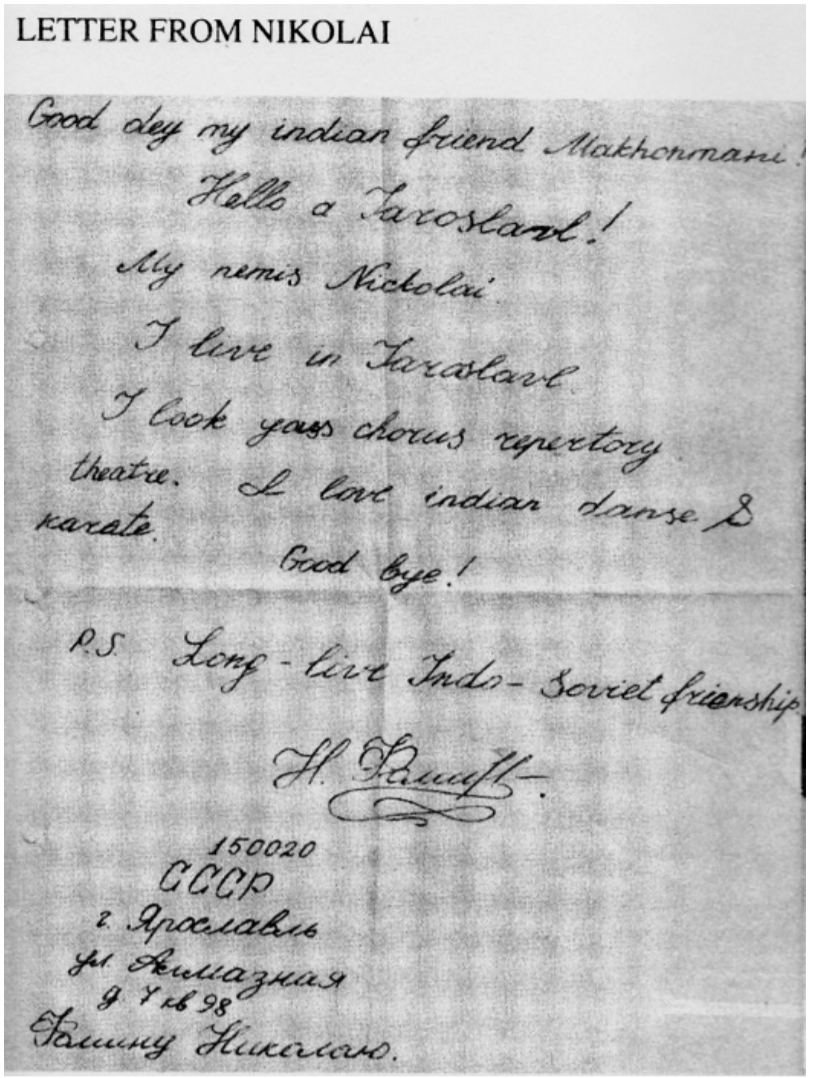 LETTER FROM NIKOLAI
Good dey my indian friend Makhonmani!
Hello a Iaroslavl!
My nemis Nickolai
I live in Iaroslavl.
I look yass chorus repertory
theatre. I love indian danse &
karate.
Good bye!
P.S. Long-live Indo-Soviet frienship
Н.
150020
СССР
г. Ярославль
ул. Алмазная
д 7 кв 98
Николаю.